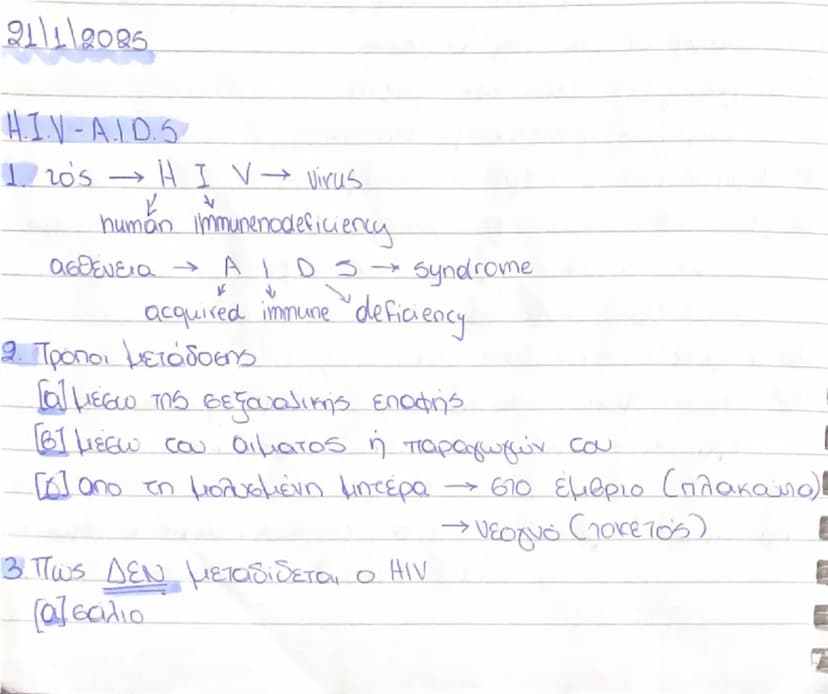 21/1/2025
H.I.V-A.I.D.S
1. ιός → H I V → virus
human immunenodeficiency
ασθένεια → A I D S → syndrome
acquired immune deficiency
2. Τρόποι μετάδοσης
[α] μέσω της σεξουαλικής επαφής
[β] μέσω του αιματος ή παραγωγών του
[δ] απο τη μολυσμένη μητέρα → στο έμβριο (πλακούντα)
→ νεογνό (τοκετός)
3. Πως ΔΕΝ μεταδίδεται ο HIV
[α] σάλιο